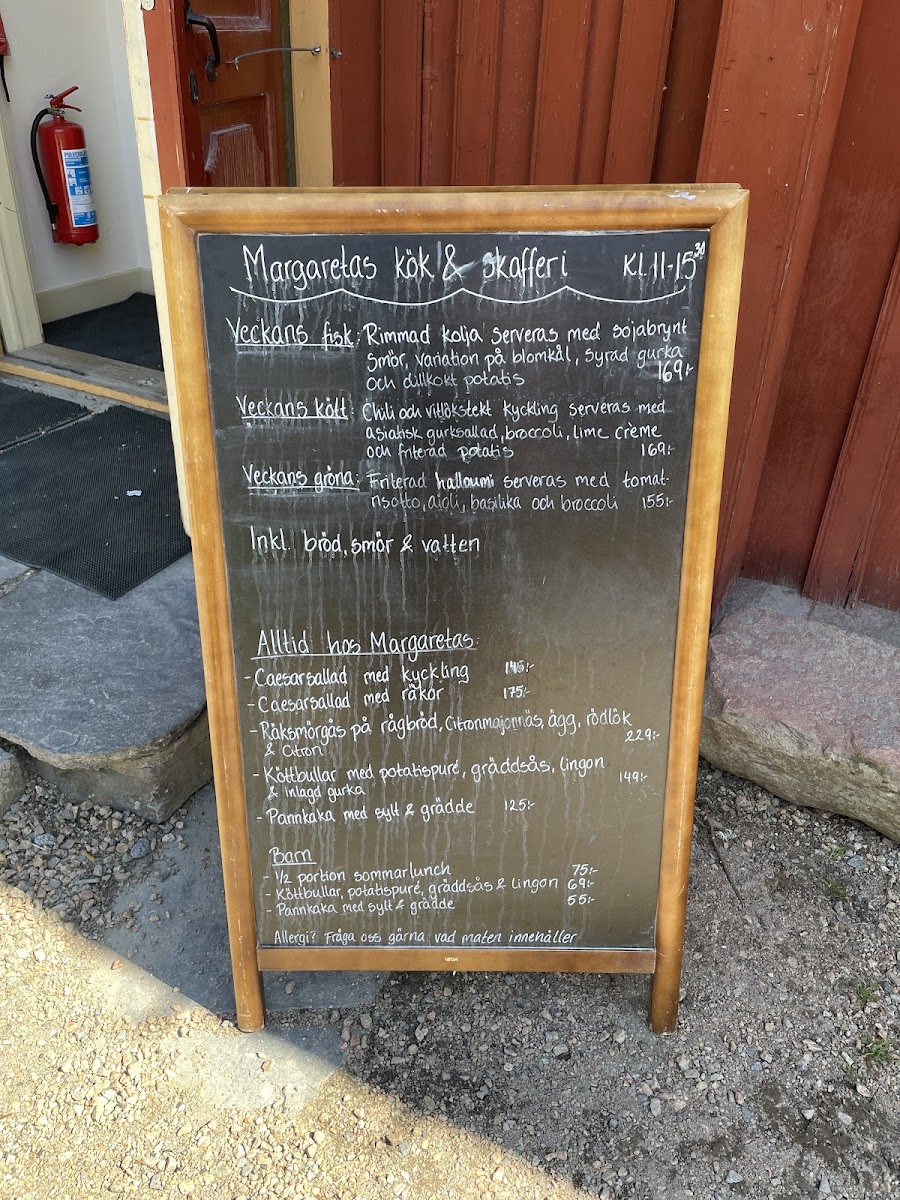 Margaretas kök & skafferi Kl. 11-15³⁰
Veckans fisk: Rimmad kolja serveras med sojabrynt
smör, variation på blomkål, syrad gurka
och dillkokt potatis 169:-
Veckans kött: Chili och vitlökstekt kyckling serveras med
asiatisk gurksallad, broccoli, lime creme
och friterad potatis 169:-
Veckans gröna: Friterad halloumi serveras med tomat-
risotto, ajoli, basilika och broccoli 155:-
Inkl. bröd, smör & vatten
Alltid hos Margaretas:
- Caesarsallad med kyckling 145:-
- Caesarsallad med räkor 175:-
- Räksmörgås på rågbröd, Citronmajonnäs, ägg, rödlök
& Citron 229:-
- Köttbullar med potatispuré, gräddsås, lingon
& inlagd gurka 149:-
- Pannkaka med sylt & grädde 125:-
Barn
- 1/2 portion sommarlunch 75:-
- Köttbullar, potatispuré, gräddsås & lingon 69:-
- Pannkaka med sylt & grädde 55:-
Allergi? Fråga oss gärna vad maten innehåller